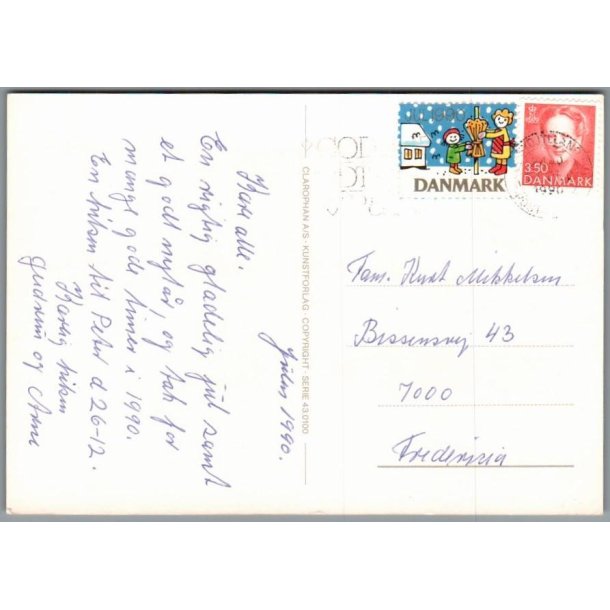 Julen 1990.
Kære alle.
En rigtig glædelig jul samt
et godt nytår, og tak for
mange gode timer i 1990.
En hilsen til Peter d 26-12.
Kærlig hilsen
Gudrun og Arne
CLAROPHAN A/S · KUNSTFORLAG · COPYRIGHT · SERIE 43.0100
1990
DANMARK
3.50
DANMARK
Fam. Kurt Mikkelsen
Bissensvej 43
7000
Fredericia